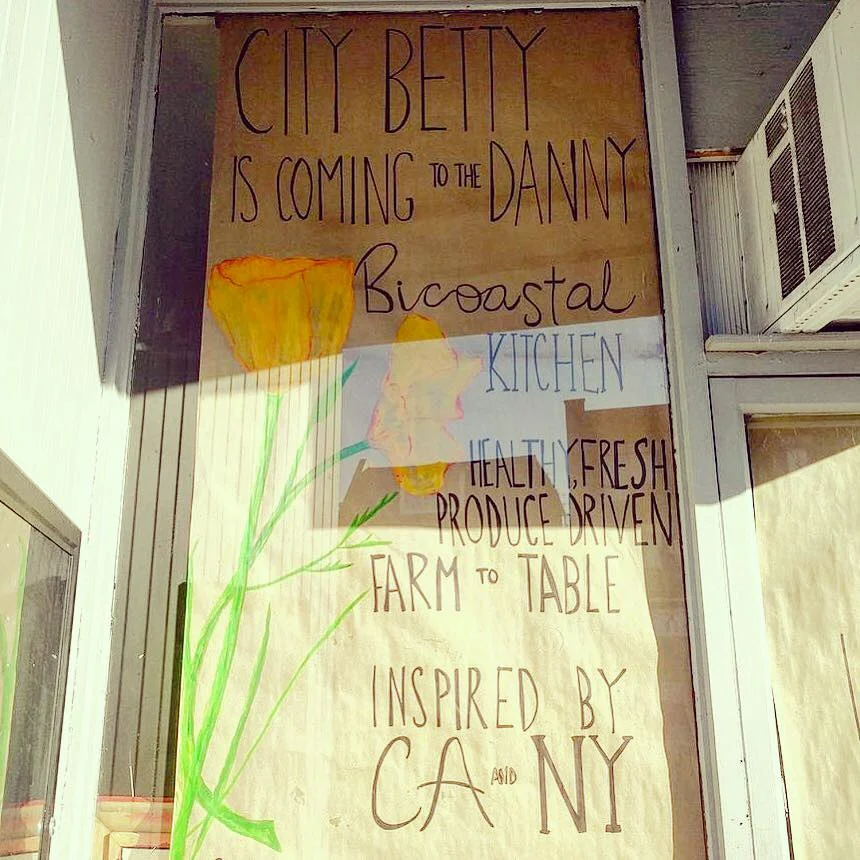 CITY BETTY
IS COMING TO THE DANNY
Bicoastal
KITCHEN
HEALTHY, FRESH
PRODUCE DRIVEN
FARM TO TABLE
INSPIRED BY
CA AND NY